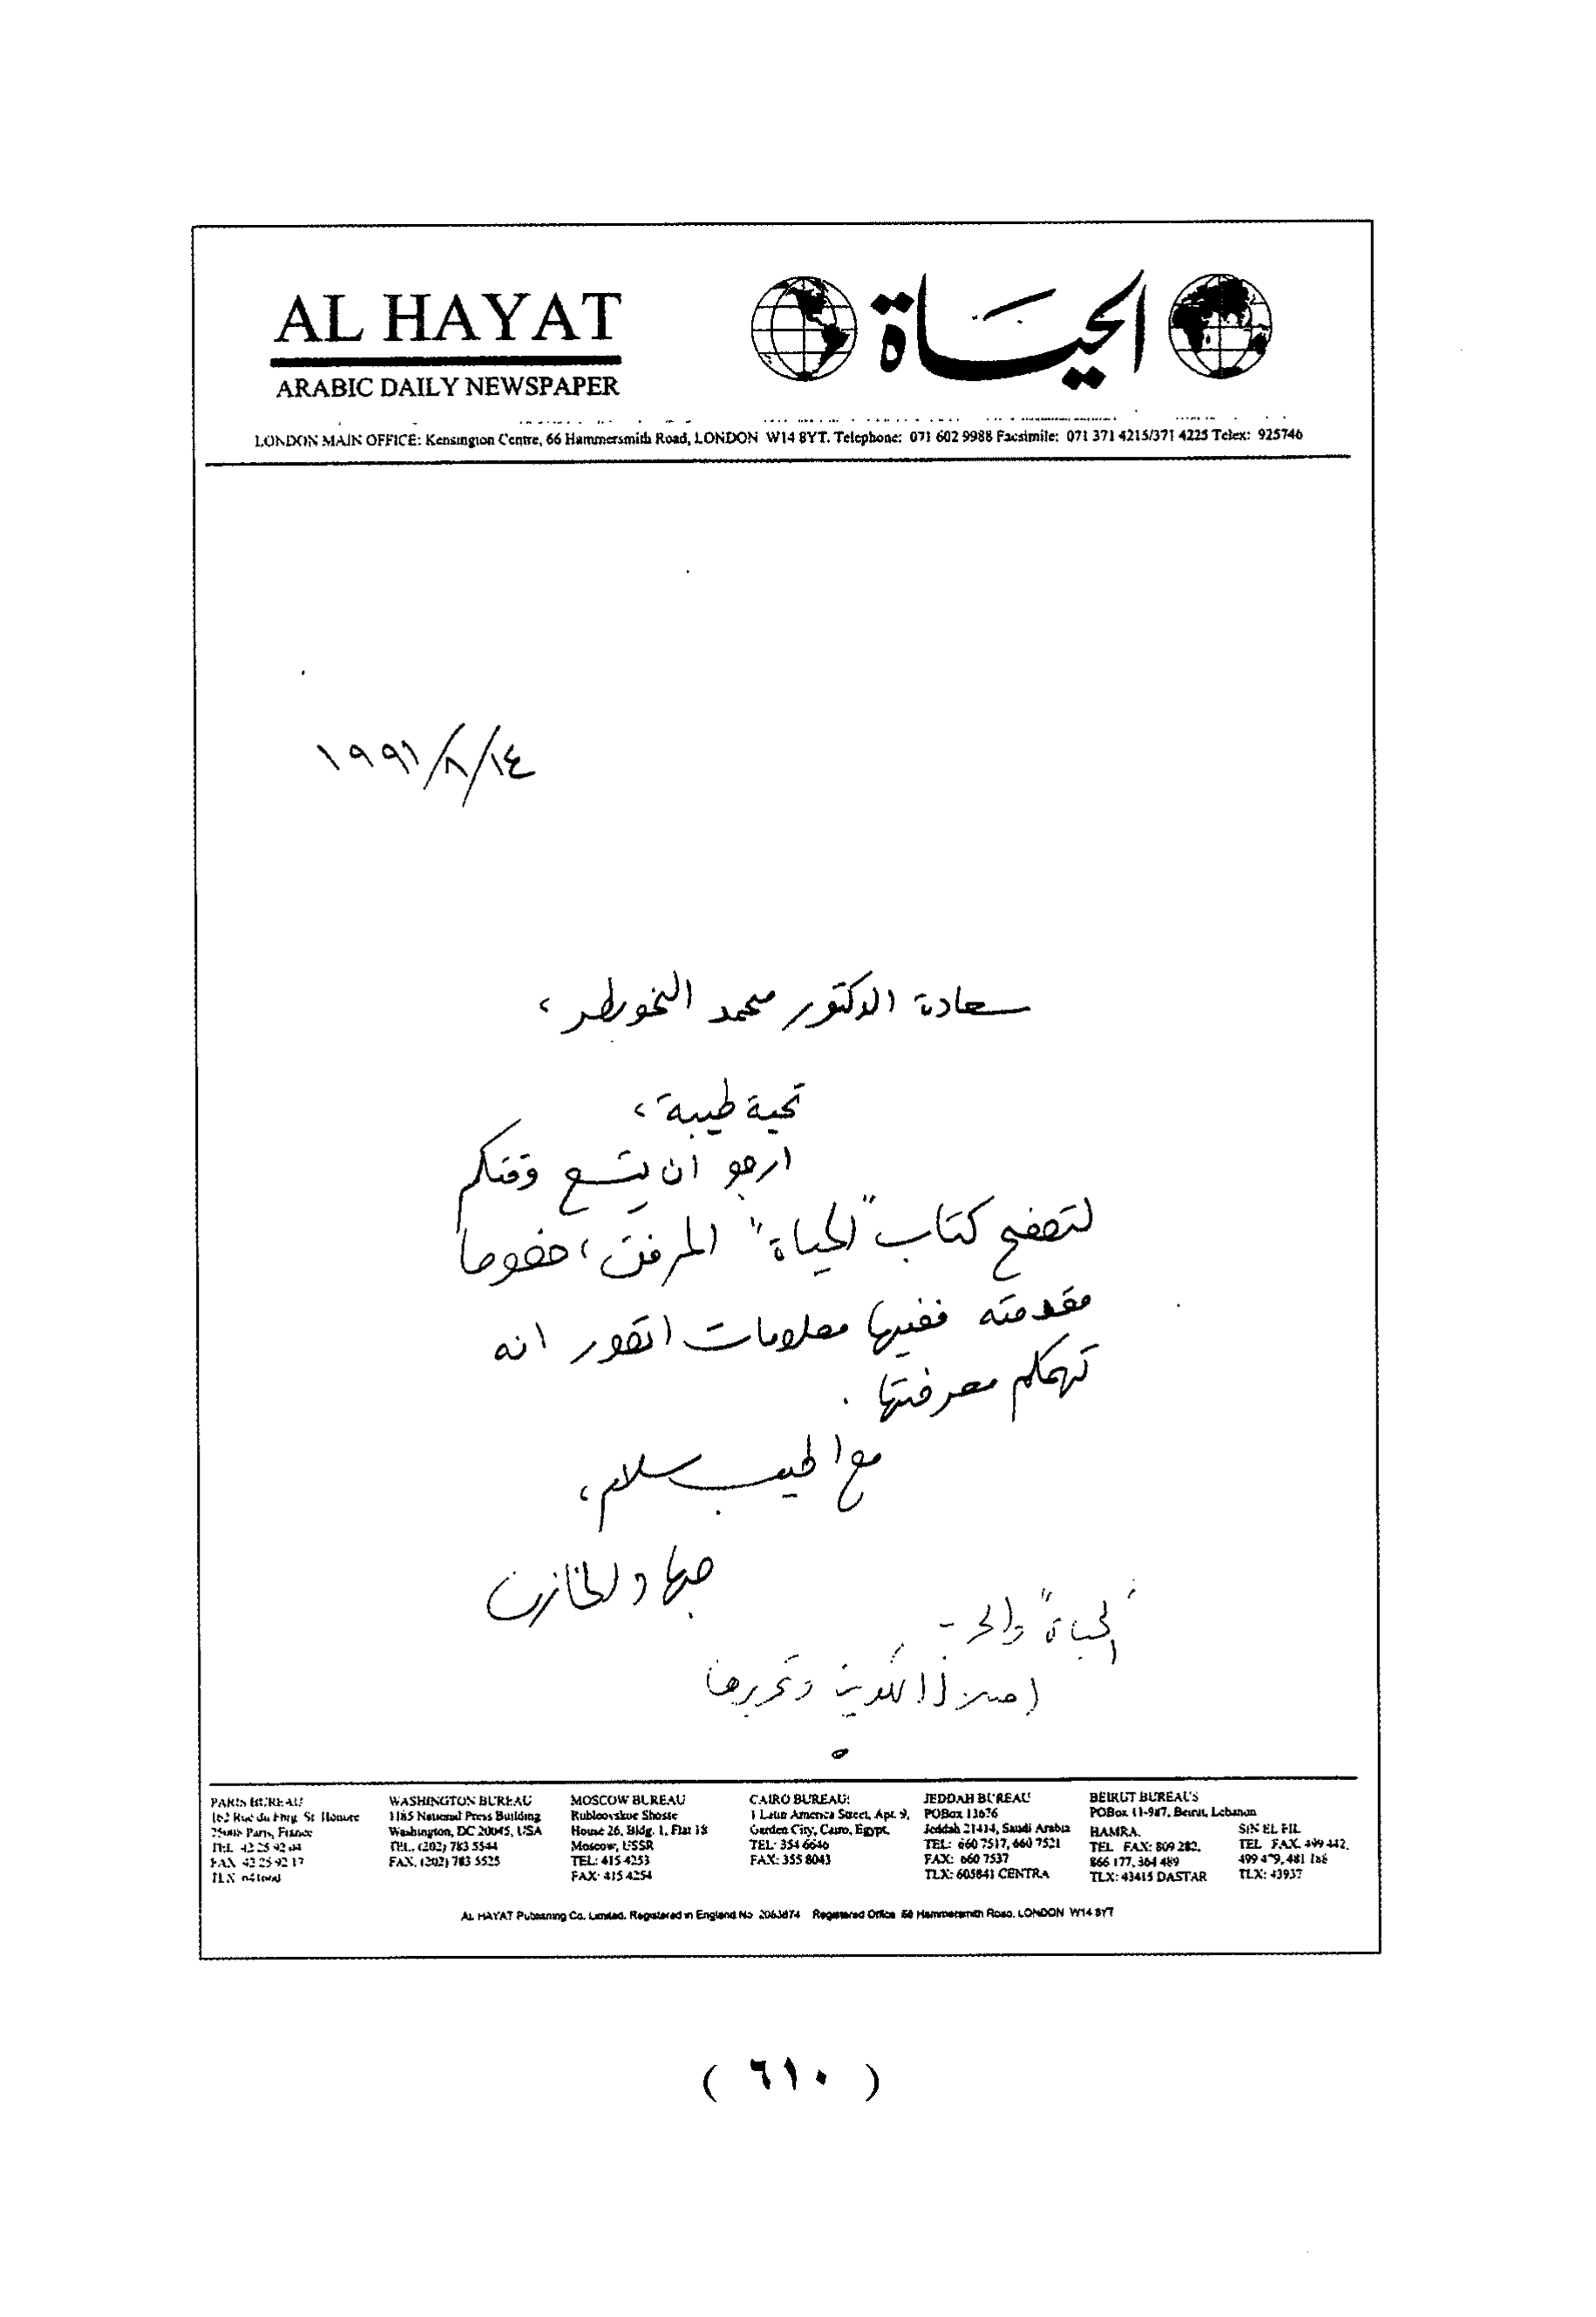 AL HAYAT
ARABIC DAILY NEWSPAPER
الحياة
LONDON MAIN OFFICE: Kensington Centre, 66 Hammersmith Road, LONDON W14 8YT. Telephone: 071 602 9988 Facsimile: 071 371 4215/371 4225 Telex: 925746
١٩٩١/٨/١٤
سعادة الدكتور محمد الخويطر،
تحية طيبة،
ارجو ان يتسع وقتكم
لتصفح كتاب "الحياة" المرفق، خصوصا
مقدمته ففيها معلومات اتصور انه
تهمكم معرفتها.
مع اطيب سلام،
جهاد الخازن
"الحياة" والحرب
الكويت وتحريرها
PARIS BUREAU
162 Rue du Fbrg. St Honore
75008 Paris, France
TEL 42 25 92 04
FAX 42 25 92 17
WASHINGTON BUREAU
1185 National Press Building
Washington, DC 20045, USA
TEL. (202) 783 5544
FAX. (202) 783 5525
MOSCOW BUREAU
Rubleovskoe Shosse
House 26, Bldg. 1, Flat 18
Moscow, USSR
TEL: 415 4253
FAX: 415 4254
CAIRO BUREAU:
1 Latin America Street, Apt. 9,
Garden City, Cairo, Egypt.
TEL: 354 6646
FAX: 355 8043
JEDDAH BUREAU
POBox 13676
Jeddah 21414, Saudi Arabia
TEL: 660 7517, 660 7521
FAX: 660 7537
TLX: 605841 CENTRA
BEIRUT BUREAU'S
POBox 11-987, Beirut, Lebanon
HAMRA.
TEL FAX: 809 282,
866 177, 364 489
TLX: 43415 DASTAR
SIN EL FIL
TEL FAX. 499 442,
499 479, 481
TLX: 43937
AL HAYAT Publishing Co. Limited. Registered in England No 2063874 Registered Office 66 Hammersmith Road, LONDON W14 8YT
( ٦١٠ )